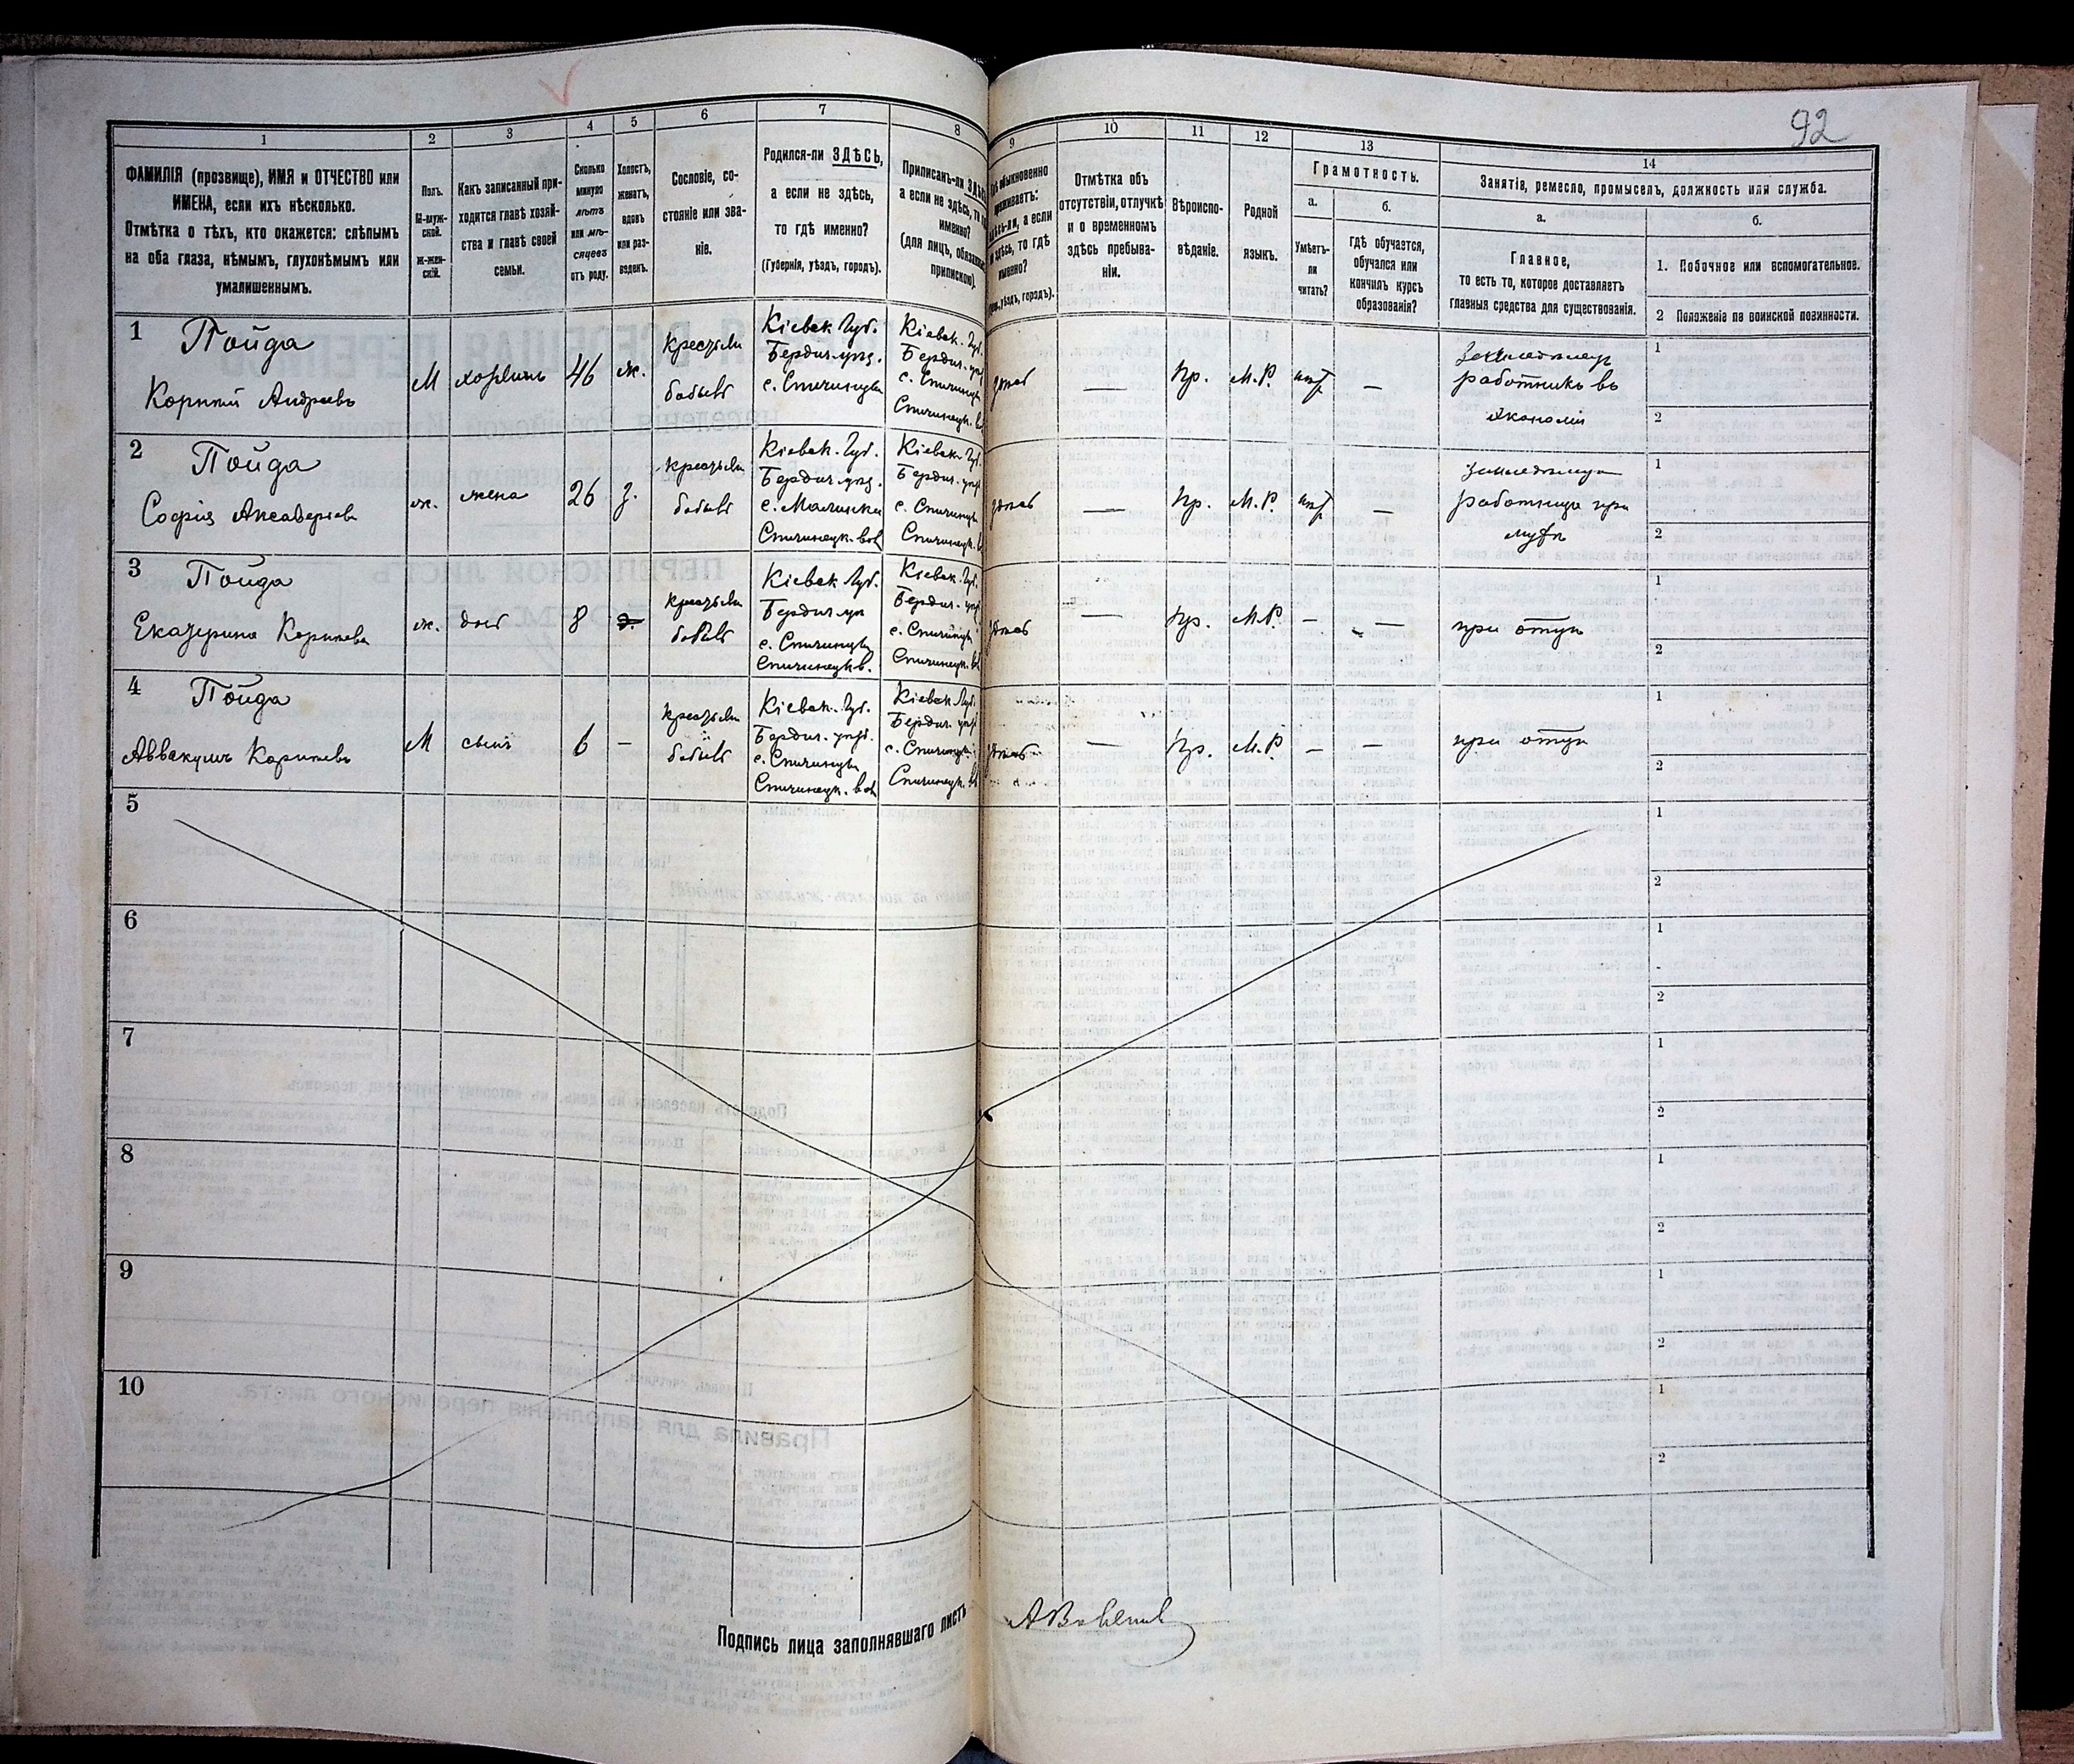 92
1
2
3
4
5
6
7
8
9
10
11
12
13
14
ФАМИЛІЯ (прозвище), ИМЯ и ОТЧЕСТВО или
ИМЕНА, если ихъ нѣсколько.
Отмѣтка о тѣхъ, кто окажется: слѣпымъ
на оба глаза, нѣмымъ, глухонѣмымъ или
умалишеннымъ.
Полъ.
М-муж-
ской.
ж-жен-
скій.
Какъ записанный при-
ходится главѣ хозяй-
ства и главѣ своей
семьи.
Сколько
минуло
лѣтъ
или мѣ-
сяцевъ
отъ роду.
Холостъ,
женатъ,
вдовъ
или раз-
веденъ.
Сословіе, со-
стояніе или зва-
ніе.
Родился-ли ЗДѢСЬ,
а если не здѣсь,
то гдѣ именно?
(Губернія, уѣздъ, городъ).
Приписанъ-ли
а если не здѣсь, то
именно?
(для лицъ,
припискою).
обыкновенно
а если
здѣсь, то гдѣ
именно?
уѣздъ, городъ).
Отмѣтка объ
отсутствіи, отлучкѣ
и о временномъ
здѣсь пребыва-
ніи.
Вѣроиспо-
вѣданіе.
Родной
языкъ.
Грамотность.
а.
Умѣетъ-
ли
читать?
б.
гдѣ обучается,
обучался или
кончилъ курсъ
образованія?
Занятіе, ремесло, промыселъ, должность или служба.
а.
Главное,
то есть то, которое доставляетъ
главныя средства для существованія.
б.
1. Побочное или вспомогательное.
2 Положеніе по воинской повинности.
1 Пойда
Корній Андреевъ
М
хозяинъ
46
ж.
бывш
Кіевск. Губ.
Бердич. уѣз.
с. Спичинцы
Кіевск. Губ.
Бердич. уѣз
с. Спичинцы
Спичинецк. в
здѣсь
—
Пр.
М.Р.
нѣт
—
работникъ въ
экономіи
1
2
2 Пойда
Софія
ж.
жена
26
з.
Кіевск. Губ.
Бердич. уѣз.
с. Малинки
Спичинецк. вол
Кіевск. Губ.
Бердич. уѣз
с. Спичинцы
Спичинецк. в
здѣсь
—
Пр.
М.Р.
нѣт
—
работница при
мужѣ
1
2
3 Пойда
Екатерина Корніева
ж.
дочь
8
Кіевск. Губ.
Бердич. уѣ
с. Спичинцы
Спичинецк. в.
Кіевск. Губ.
Бердич. уѣз
с. Спичинцы
Спичинецк. вол
здѣсь
—
Пр.
М.Р.
—
—
при отцѣ
1
2
4 Пойда
Аввакумъ Корніевъ
М
сынъ
6
—
Кіевск. Губ.
Бердич. уѣзд.
с. Спичинцы
Спичинецк. вол
Кіевск. Губ.
Бердич. уѣз
с. Спичинцы
Спичинецк. в
здѣсь
—
Пр.
М.Р
—
—
при отцѣ
1
2
5
1
2
6
1
2
7
1
2
8
1
2
9
1
2
10
1
2
Подпись лица заполнявшаго листъ